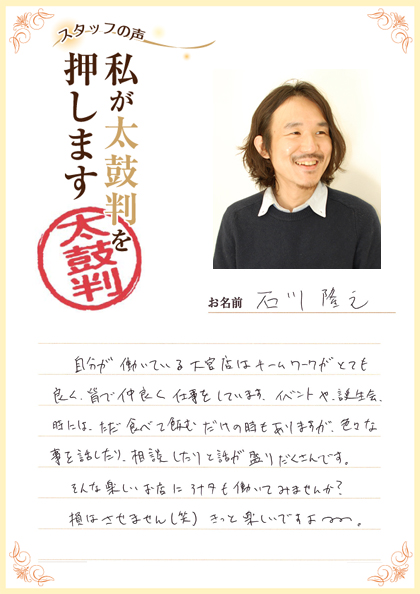 スタッフの声
私が太鼓判を
押します
太鼓判
お名前 石川 隆之
自分が働いている大宮店はチームワークがとても
良く、皆で仲良く仕事をしています。イベントや、誕生会、
時には、ただ食べて飲むだけの時もありますが、色々な
事を話したり、相談したりと話が盛りだくさんです。
そんな楽しいお店に
も働いてみませんか?
損はさせません(笑) きっと楽しいですよ